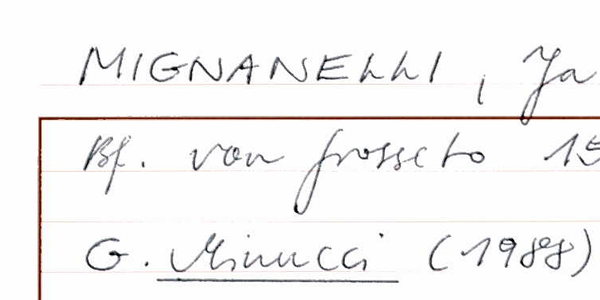 MIGNANELLI, Ja
Bf. von Grosseto 15
G. Minucci (1988)